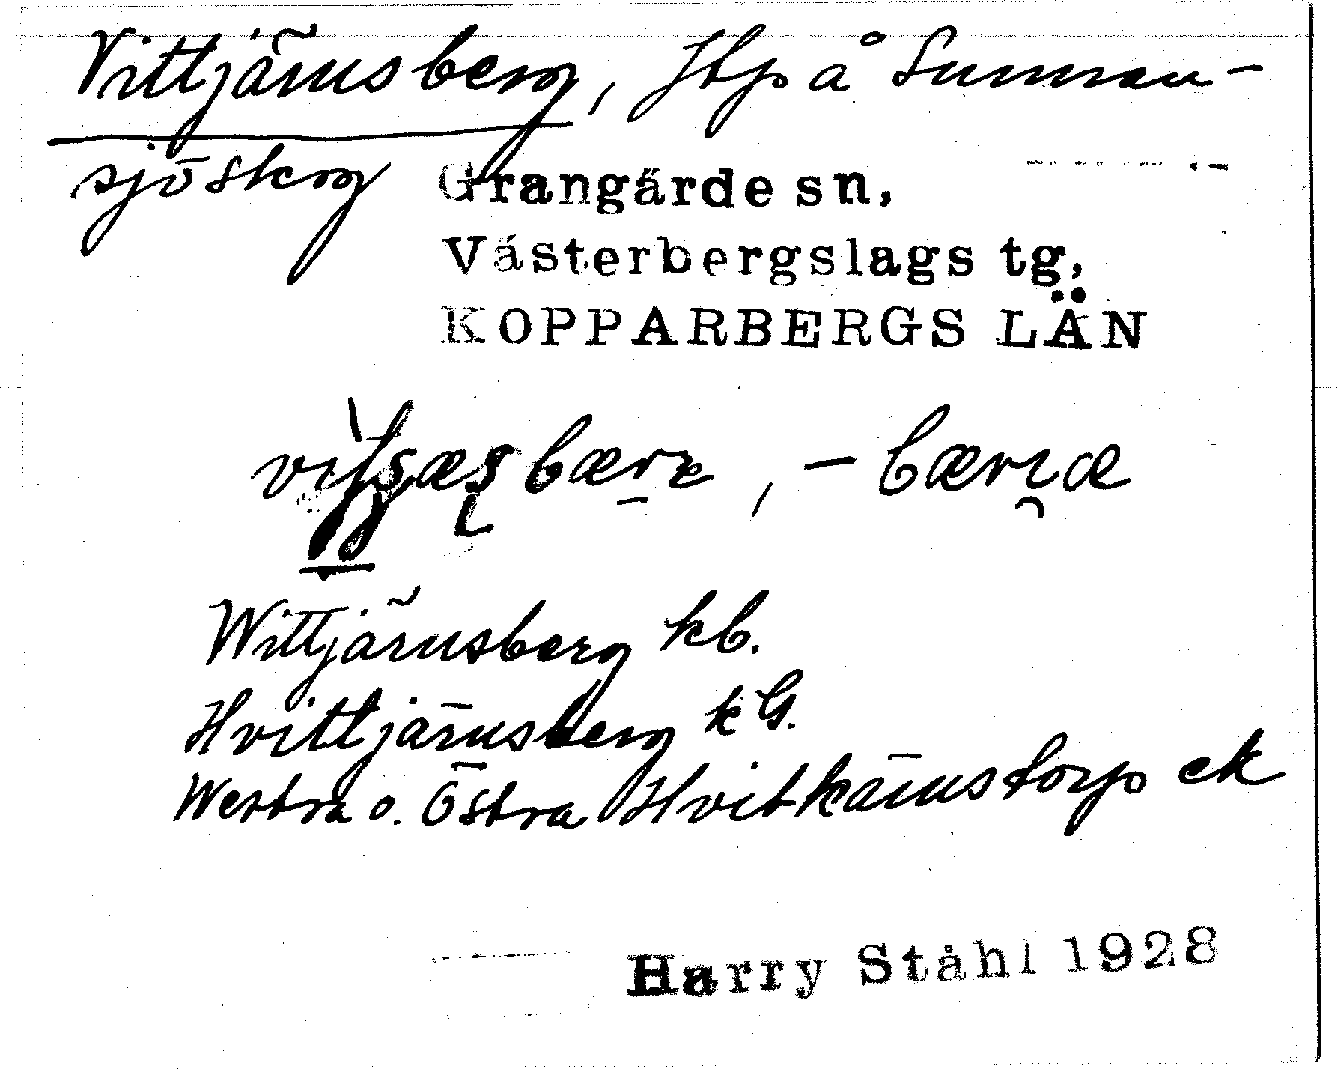 Vittjärnsberg, Jtp å Sunnan-
sjöskog
Grangärde sn,
Västerbergslags tg,
KOPPARBERGS LÄN
Wittjärnsberg kb.
Hvittjärnsberg kG.
Westra o. Östra Hvitkärnstorp ek
Harry Ståhl 1928